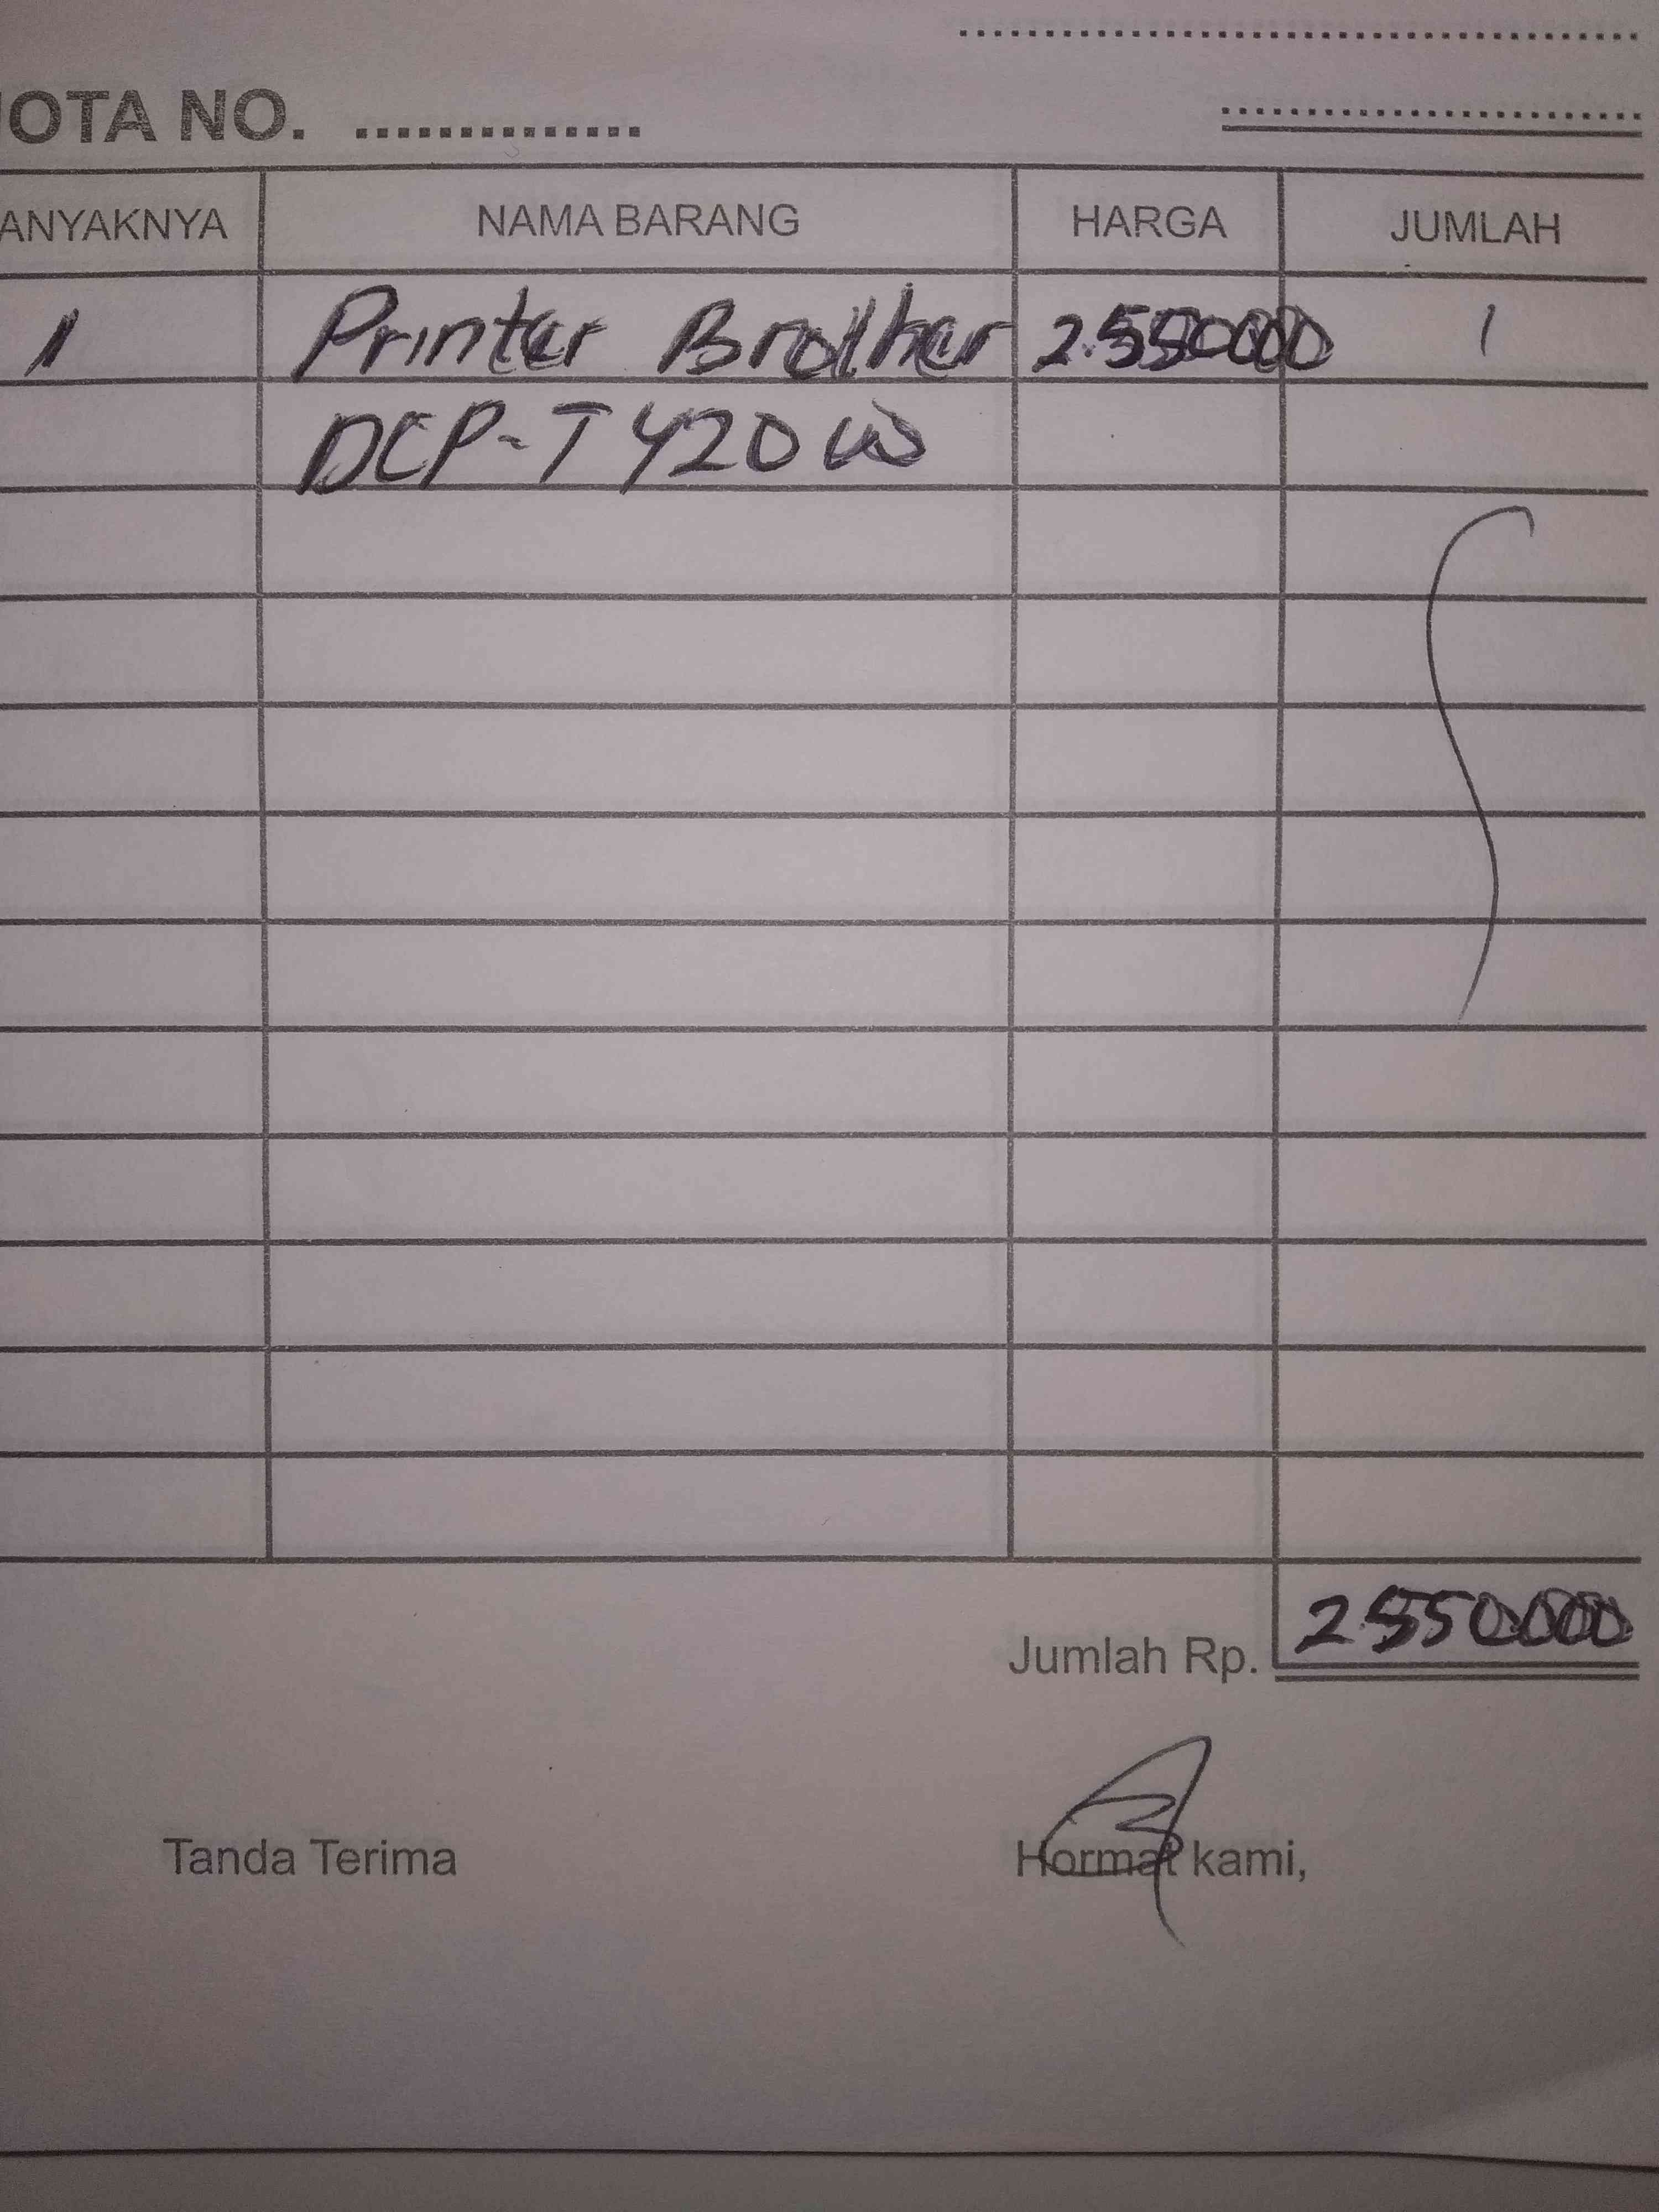 OTA NO. ..............
ANYAKNYA NAMA BARANG HARGA JUMLAH
1 Printer Brother 2.550000 1
DCP-T420W
Jumlah Rp. 2.550.000
Tanda Terima Hormat kami,